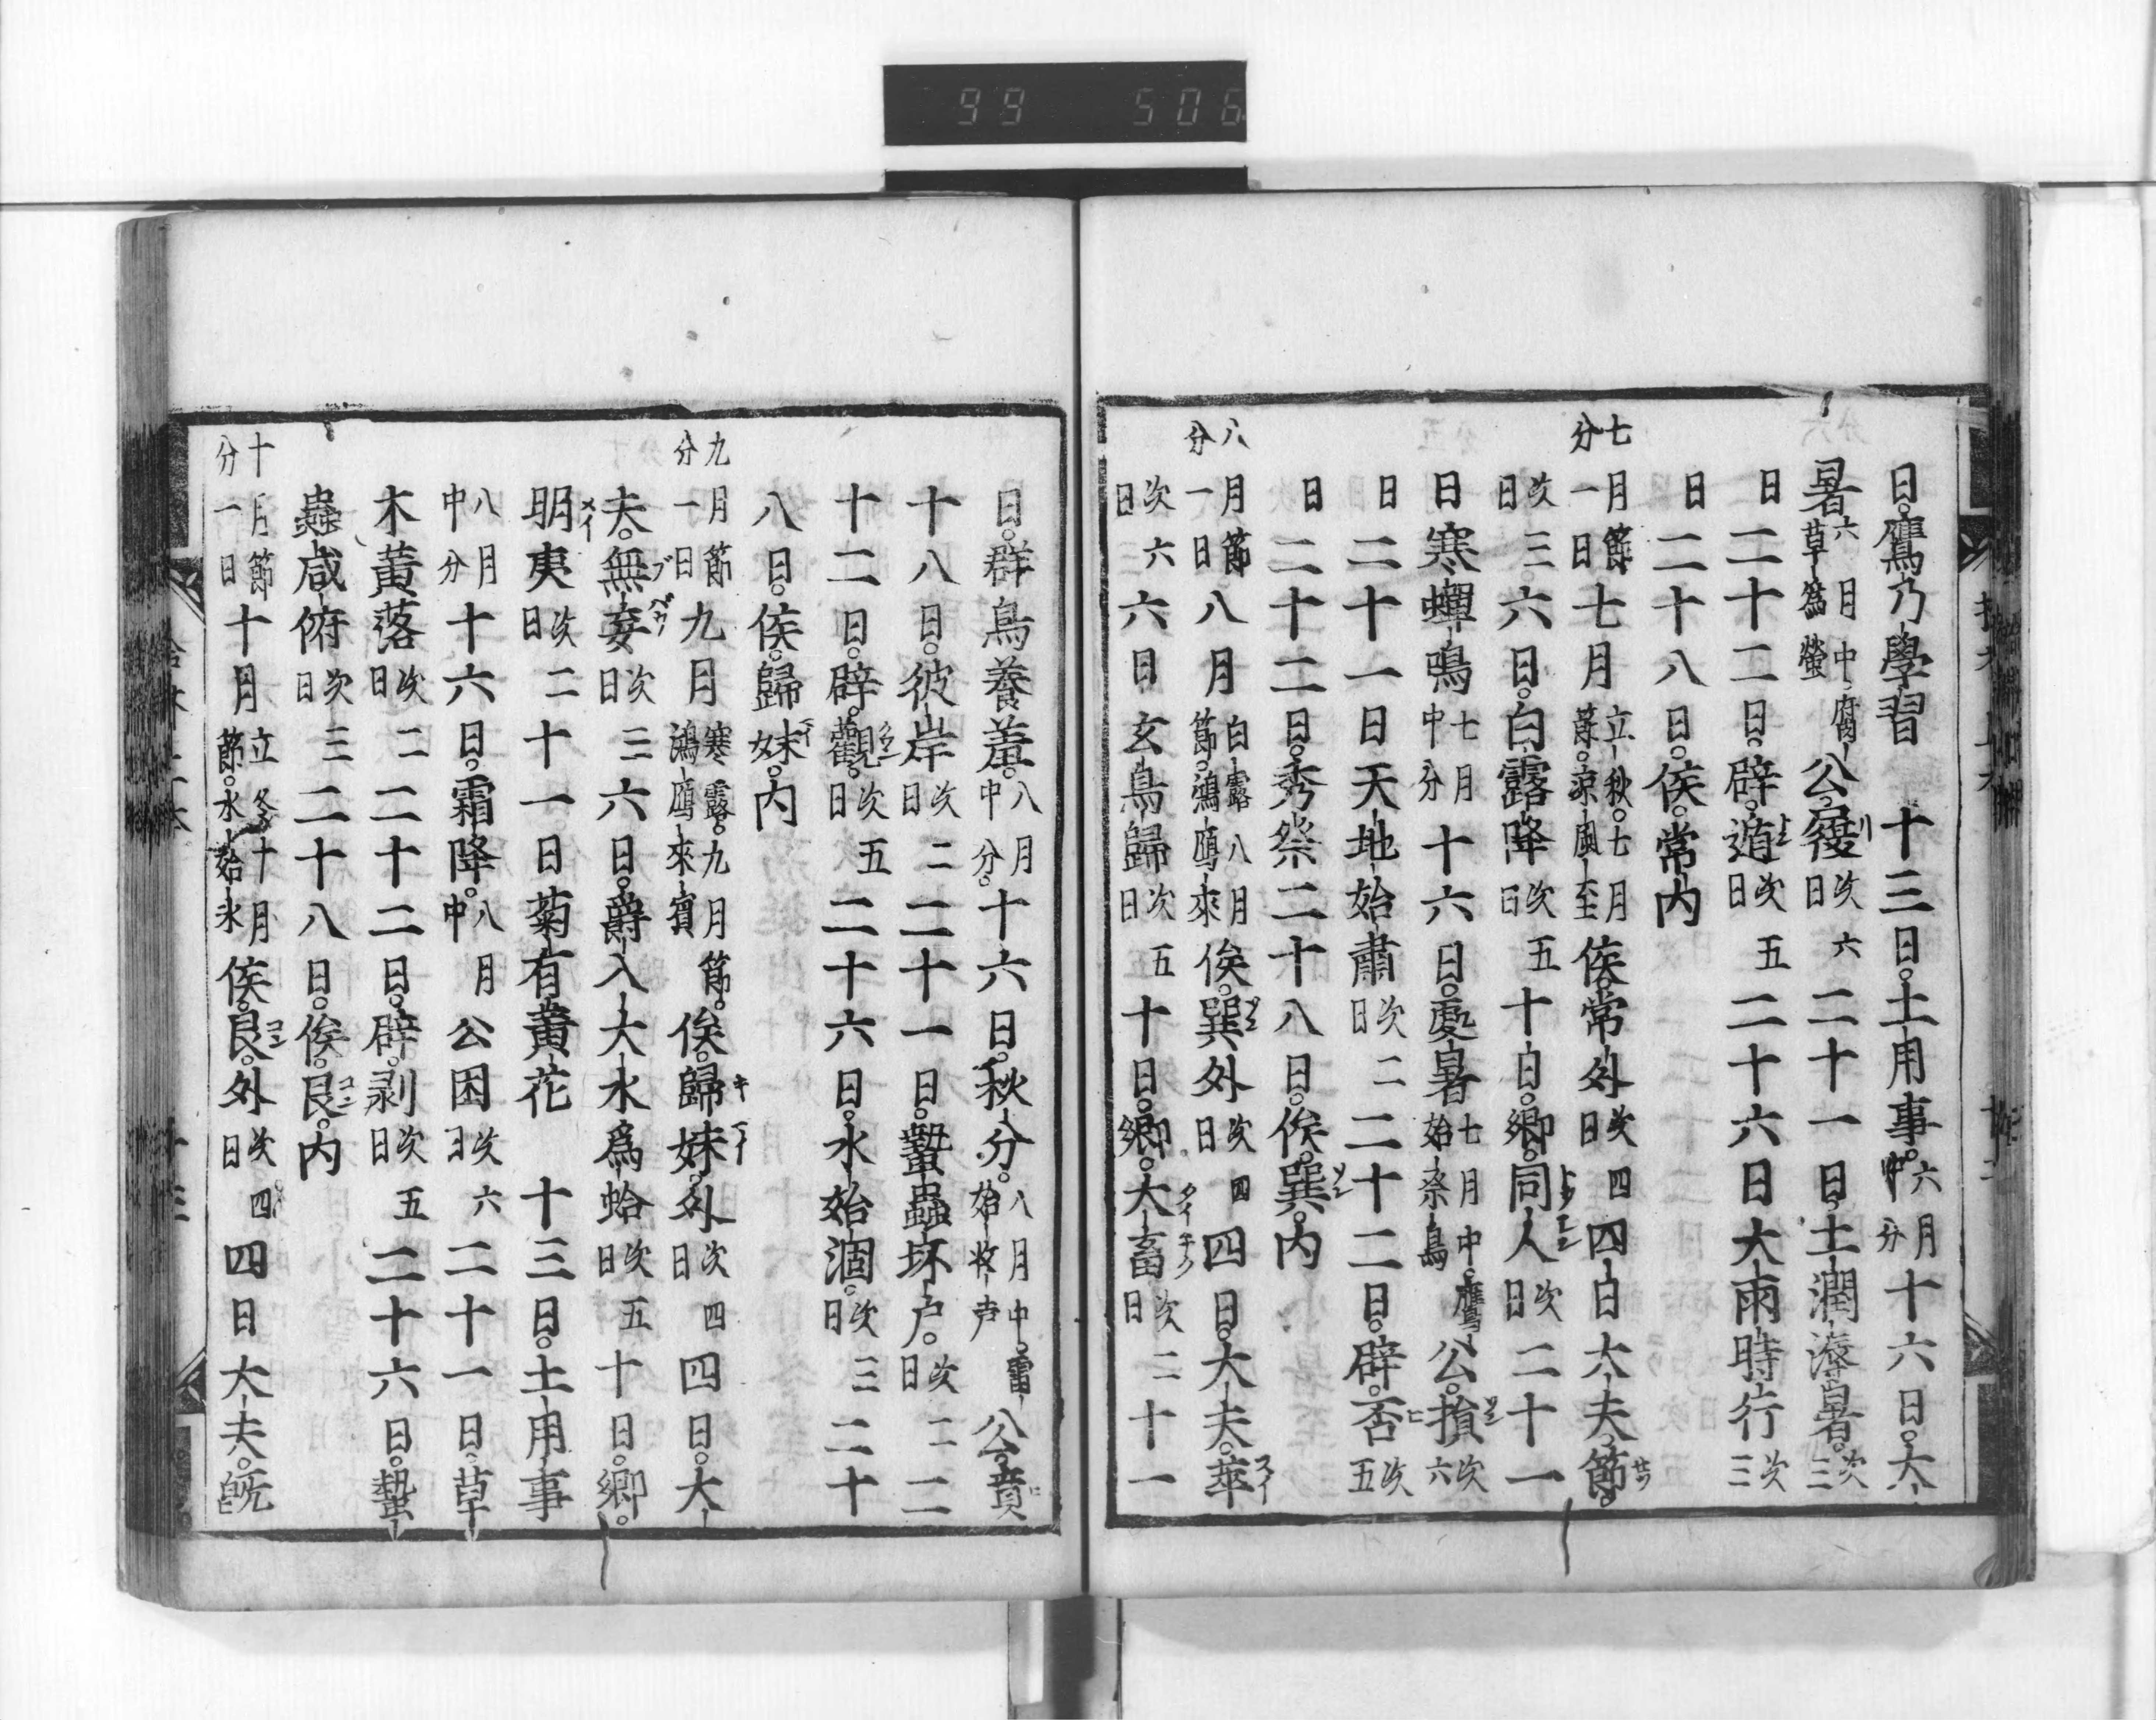 99 506
日。鷹乃學習 十三日。土用事。六月中分十六日。大
暑六月中腐草爲螢公。履リ次日六二十一日。土潤溽暑。次三
日二十二日。辟。遁次日五二十六日大雨時行次三
日二十八日。侯。常内
七分月節一日七月立秋。七月節。涼風至侯。常外次日四四日大夫。節。
次日三六日。白露降次日五十日。卿。同人次日二十一
日寒蟬鳴七月中分十六日。處暑七月中。鷹始祭鳥公。損次六
日二十一日天地始肅次日二二十二日。辟。否次五
日二十二日。秀祭二十八日。侯。巽。内
八分月節一日。八月白露八月節。鴻鴈來侯。巽外次日四四日。大夫。萃
次日六六日玄鳥歸次日五十日。卿。大畜次日二十一
日。群鳥養羞。八月中分。十六日。秋分。八月中。雷始收声公。賁
十八日。彼岸次日二二十一日。蟄蟲坏户。次日二二
十二日。辟。觀。次日五二十六日。水始涸。次日三二十
八日。侯。歸妹。内
九分月節一日九月寒露。九月節。鴻鴈來賓侯。歸妹。外次日四四日。大
夫。無妄次日三六日。爵入大水爲蛤次日五十日。卿。
明夷次日二十一日菊有黄花 十三日。土用事
八月中分十六日。霜降。八月中公困次日六二十一日。草
木黄落次日二二十二日。辟。剥次日五二十六日。蟄
蟲咸俯次日三二十八日。侯。艮。内
十分月節一日十月立冬十月節。水始氷侯。艮。外次日四四日大夫。既